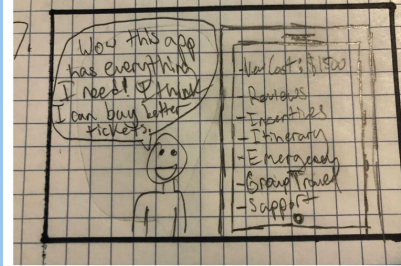 7.
Wow this app
has everything
I need! I think
I can buy better
tickets.
Cost: $1500
- Reviews
- Incentives
- Itinerary
- Emergency
- Group Travel
- Support